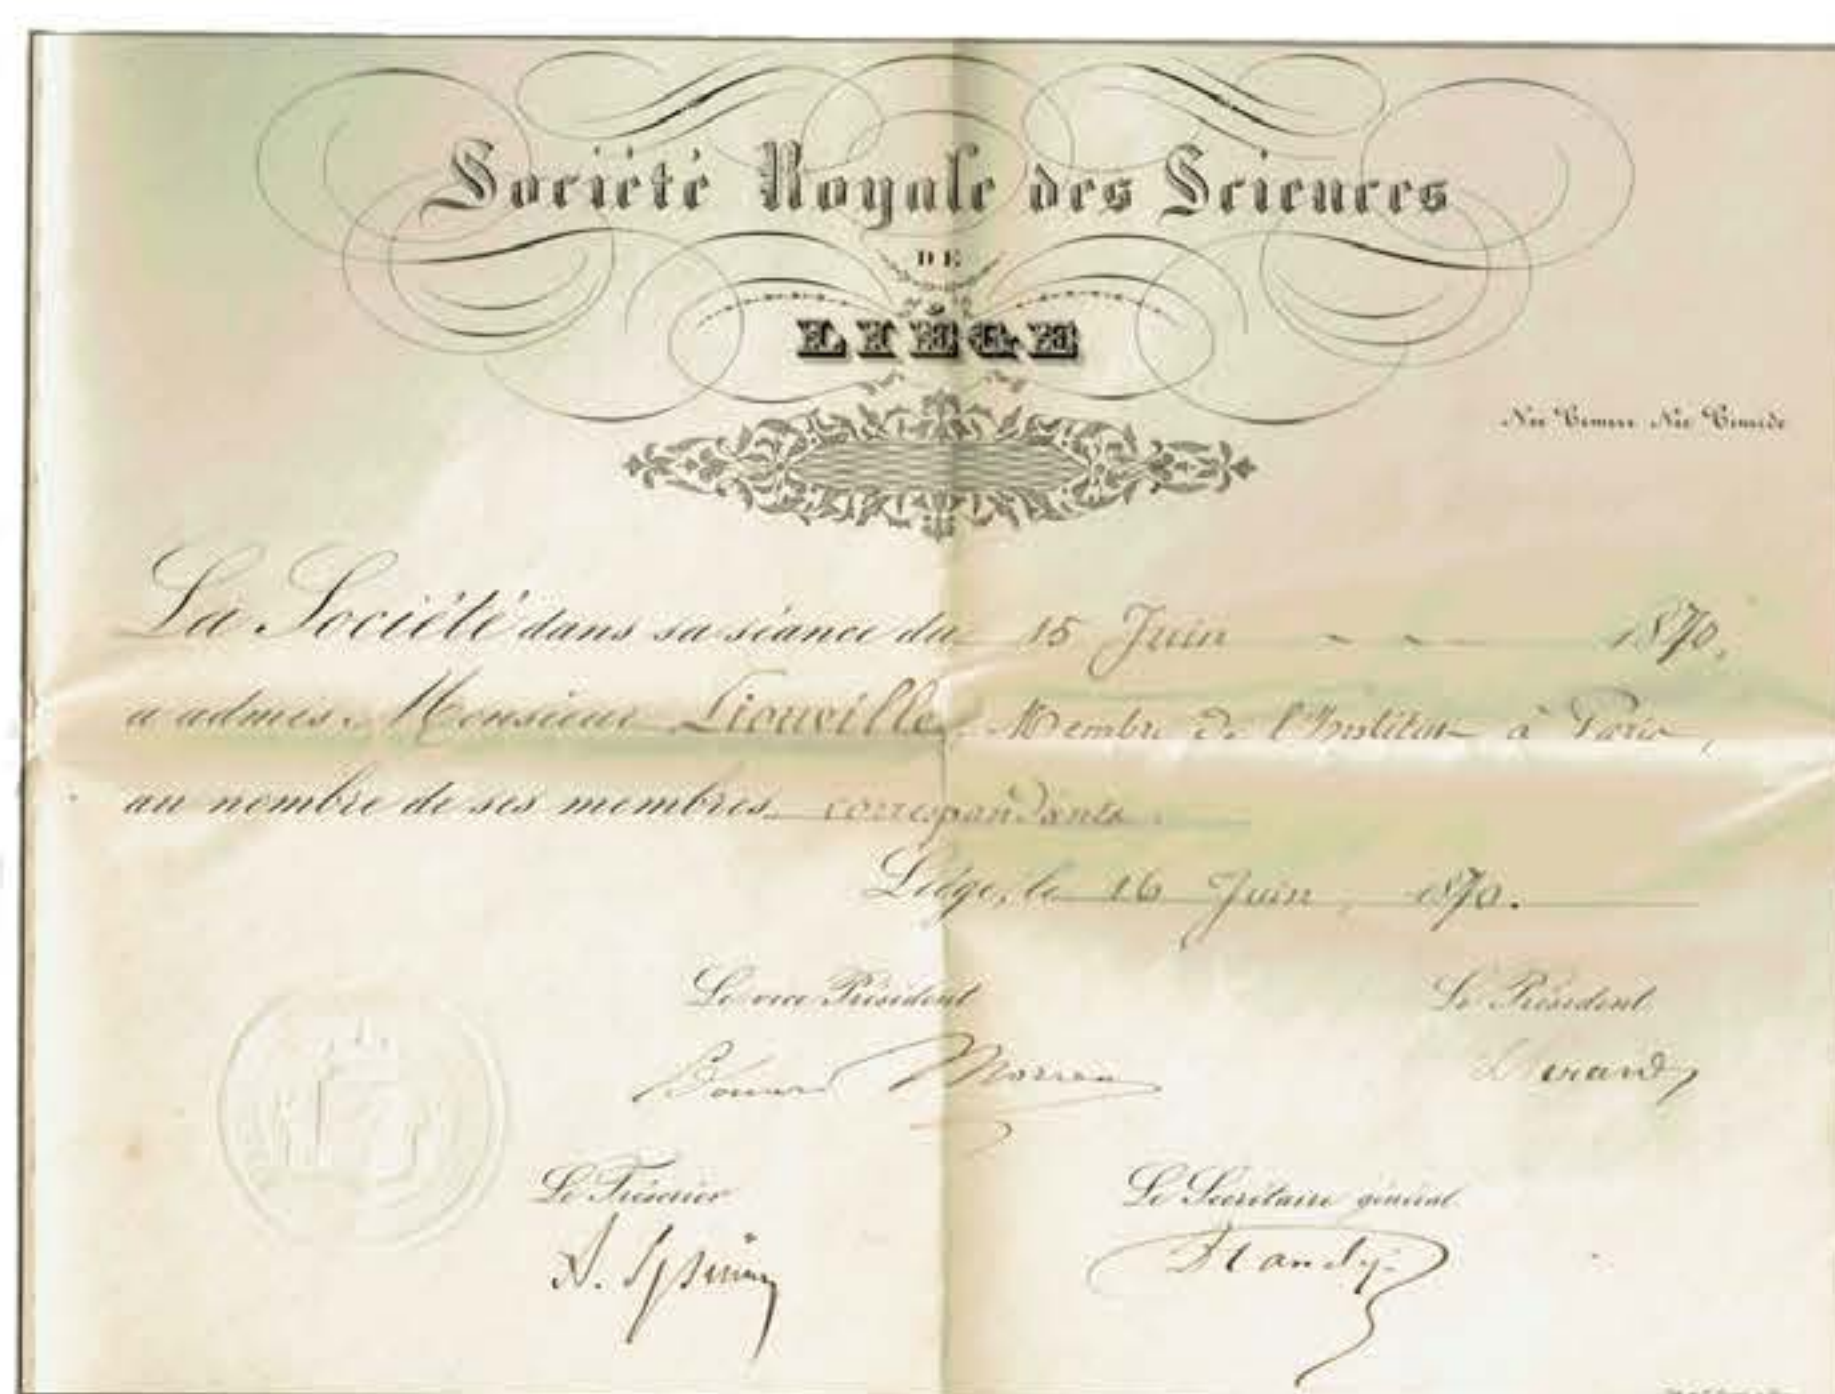 Société Royale des Sciences
DE
LIÈGE
Nec Temere Nec Timide
La Société dans sa séance du 15 Juin 1870,
a admis Monsieur Liouville, Membre de l'Institut à Paris,
au nombre de ses membres correspondants
Liège, le 16 Juin 1870.
Le vice Président
Le Président
Morren
Le Trésorier
Le Secrétaire général
A. Spring